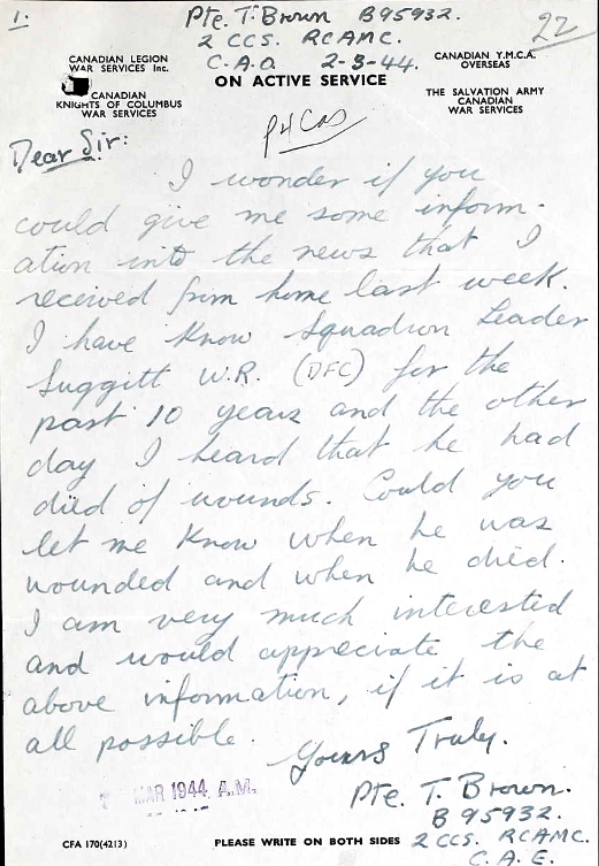 1.
Pte. T. Brown B95932.
22
2 CCS. RCAMC.
C.A.O. 2-3-44.
CANADIAN LEGION
WAR SERVICES Inc.
CANADIAN Y.M.C.A.
OVERSEAS
ON ACTIVE SERVICE
CANADIAN
KNIGHTS OF COLUMBUS
WAR SERVICES
THE SALVATION ARMY
CANADIAN
WAR SERVICES
P4 Cas
Dear Sir:
I wonder if you
could give me some inform-
ation into the news that I
received from home last week.
I have know Squadron Leader
Suggitt W.R. (DFC) for the
past 10 years and the other
day I heard that he had
died of wounds. Could you
let me know when he was
wounded and when he died.
I am very much interested
and would appreciate the
above information, if it is at
all possible.
Yours Truly.
MAR 1944 A.M.
Pte. T. Brown.
B 95932.
2 CCS. RCAMC.
C.A.E.
CFA 170(4213)
PLEASE WRITE ON BOTH SIDES